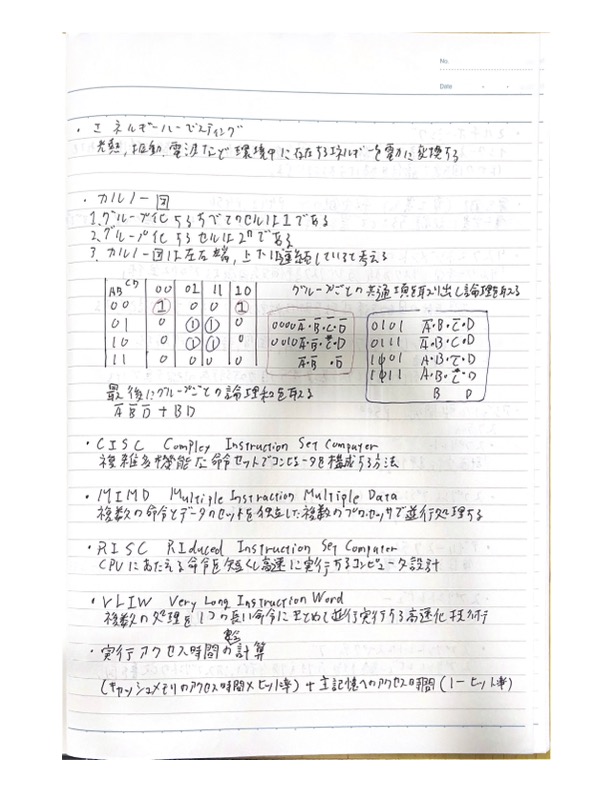 No.
Date
・エネルギーハーベスティング
光熱, 振動, 電波など環境中に存在するエネルギーを電力に変換する
・カルノー図
1. グループ化するすべてのセルは1である
2. グループ化するセルは2ⁿである
3. カルノー図は左右端, 上下は連結していると考える
グループごとの共通項を取り出し論理積を取る
AB CD 00 01 11 10
00 1 0 0 1
01 0 1 1 0
10 0 1 1 0
11 0 0 0 0
0000 A̅・B̅・C̅・D̅
0010 A̅・B̅・C・D̅
A̅・B̅ ・D̅
0101 A̅・B・C̅・D
0111 A̅・B・C・D
1101 A・B・C̅・D
1111 A・B・C・D
B D
最後にグループごとの論理和を取る
A̅ B̅ D̅ + B D
・CISC Compley Instruction Set Computer
複雑多機能な命令セットでコンピュータを構成する方法
・MIMD Multiple Instraction Multiple Data
複数の命令とデータのセットを独立した複数のプロセッサで並行処理する
・RISC RIduced Instruction Set Computer
CPUにあたえる命令を短くし高速に実行するコンピュータ設計
・VLIW Very Long Instruction Word
複数の処理を1つの長い命令にまとめし並行実行する高速化技術
・実行アクセス時間の計算
(キャッシュメモリのアクセス時間×ヒット率) + 主記憶へのアクセス時間 (1-ヒット率)